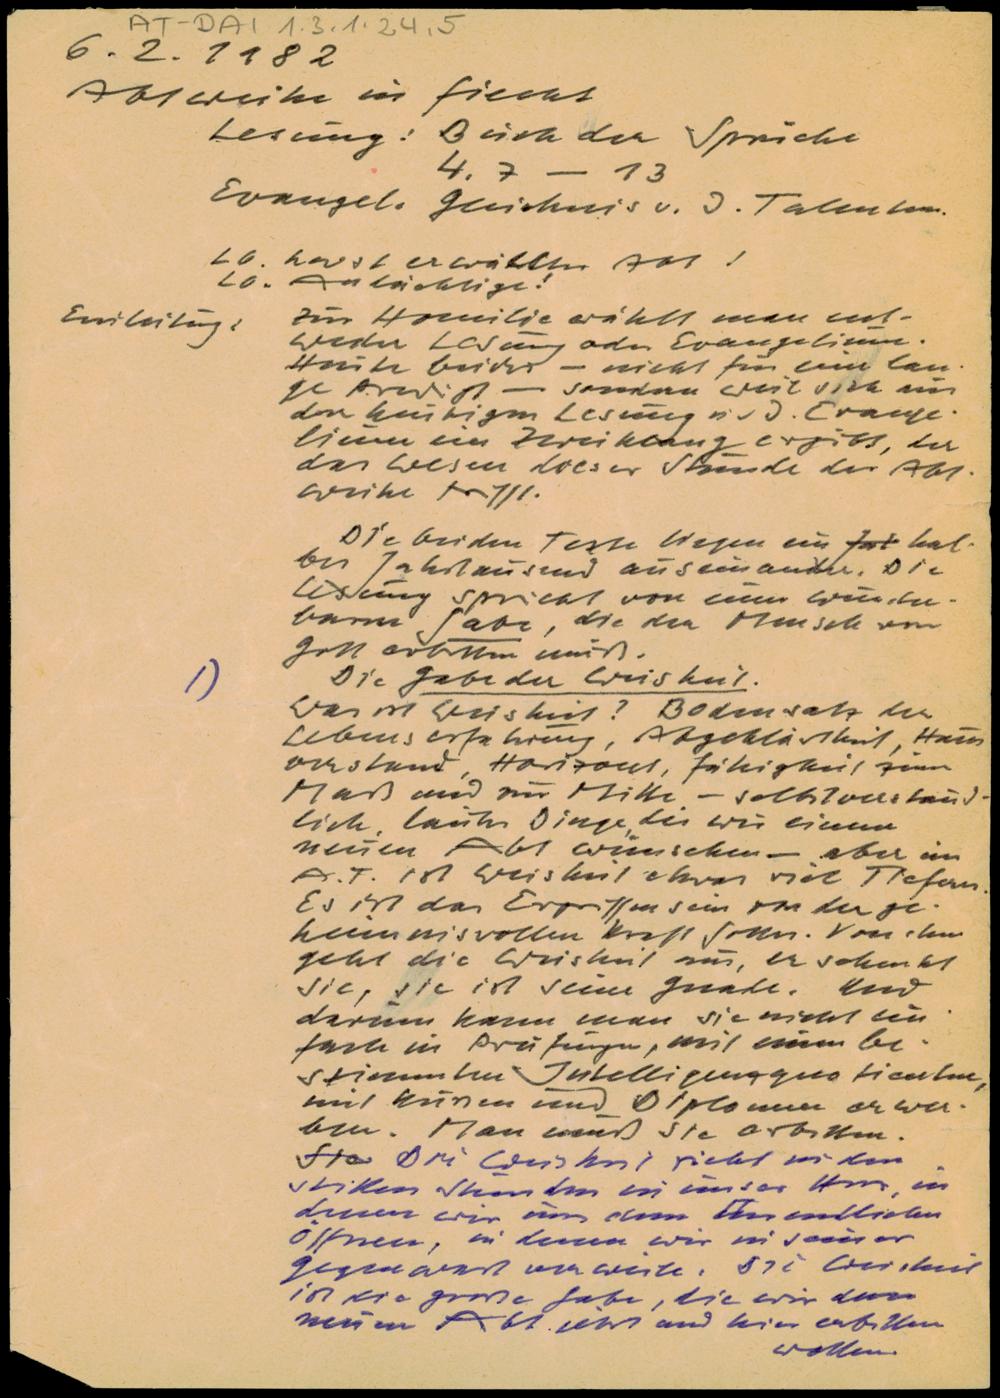 AT-DAI 1.3.1.24.5
6. 2. 1982
Abtweihe in Fiecht
Lesung: Buch der Sprüche
4. 7 — 13
Evangel. Gleichnis v. d. Talenten.
Lb. neuerwählter Abt!
Lb. Andächtige!
Einleitung:
Zur Homilie wählt man ent-
weder Lesung oder Evangelium.
Heute beides – nicht für eine lan-
ge Predigt – sondern weil sich aus
der heutigen Lesung u. d. Evange-
lium ein Zweiklang ergibt, der
das Wesen dieser Stunde der Abt-
weihe trifft.
Die beiden Texte liegen ein hal-
bes Jahrtausend auseinander. Die
Lesung spricht von einer wunder-
baren Gabe, die der Mensch von
Gott erbitten muß.
1)
Die Gabe der Weisheit.
Was ist Weisheit? Bodensatz der
Lebenserfahrung, Abgeklärtheit, Haus
verstand, Horizont, Fähigkeit zum
Maß und zur Mitte – selbstverständ-
lich, lauter Dinge, die wir einem
neuen Abt wünschen – aber im
A.T. ist Weisheit etwas viel Tieferes.
Es ist das Ergriffensein von der ge-
heimnisvollen Kraft Gottes. Von ihm
geht die Weisheit aus, er schenkt
sie, sie ist seine Gnade. Und
darum kann man sie nicht ein-
fach in Prüfungen, mit einem be-
stimmten Intelligenzquotienten,
mit Kursen und Diplomen erwer-
ben. Man muß sie erbitten.
Die Weisheit zieht in den
stillen Stunden in unser Herz, in
denen wir uns dem Unendlichen
Öffnen, in denen wir in seiner
Gegenwart verweilen. Die Weisheit
ist die große Gabe, die wir dem
neuen Abt jetzt und hier erbitten
wollen.